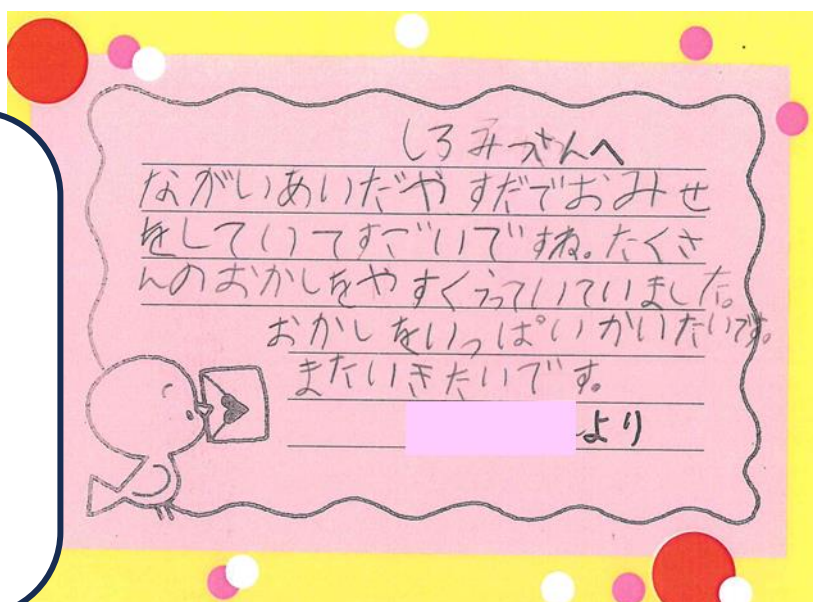 しろみつさんへ
ながいあいだやすだでおみせ
をしていてすごいですね。たくさ
んのおかしをやすくうっていていました。
おかしをいっぱいかいたいです。
またいきたいです。
より